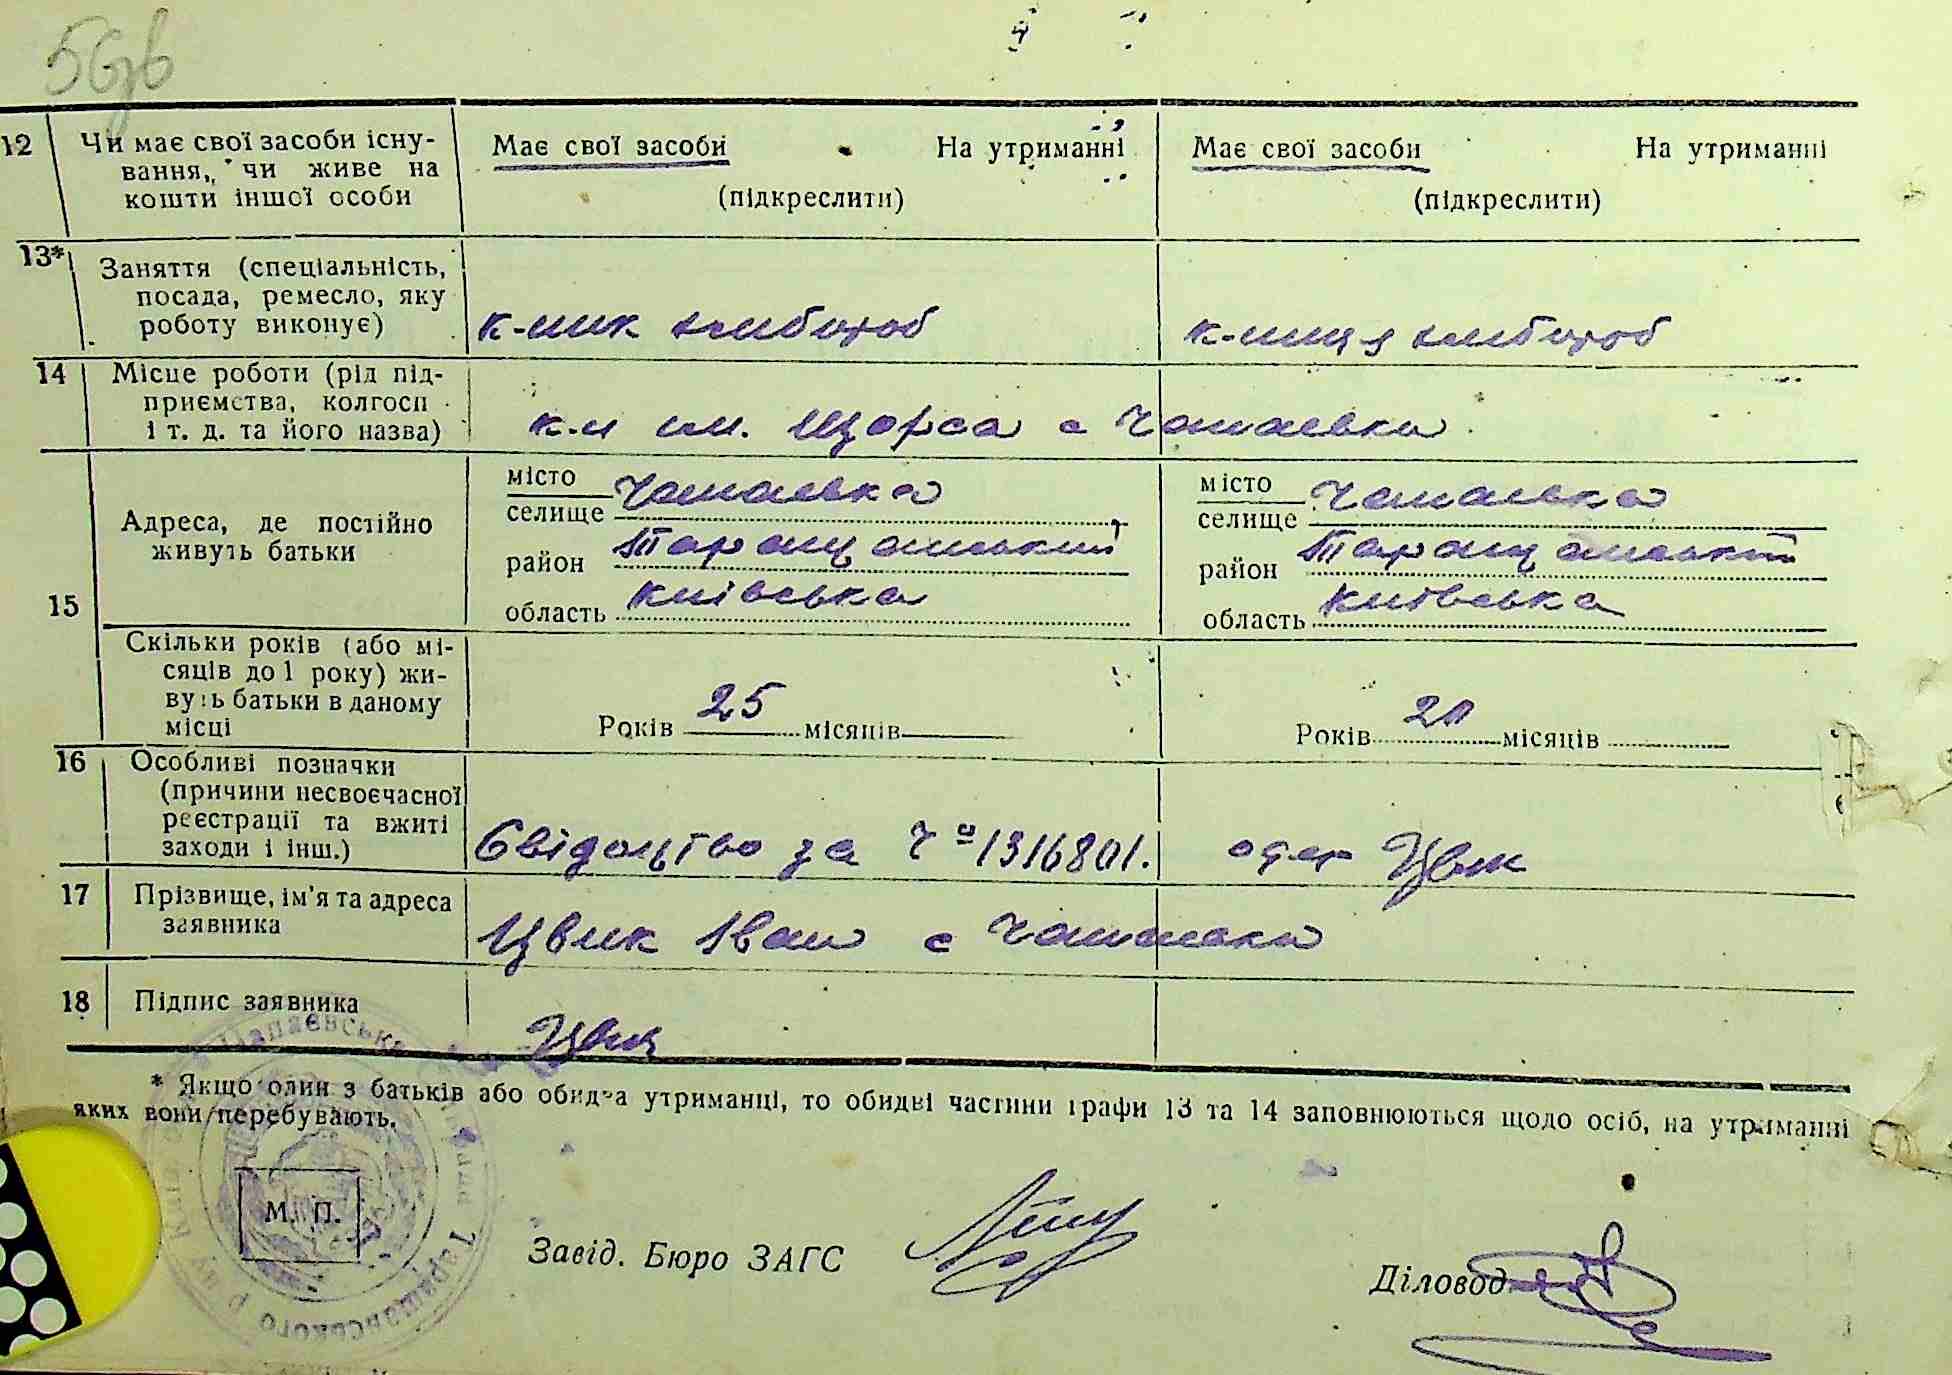 12 Чи має свої засоби існу-
вання, чи живе на
кошти іншої особи
Має свої засоби На утриманні
(підкреслити)
Має свої засоби На утриманні
(підкреслити)
13* Заняття (спеціальність,
посада, ремесло, яку
роботу виконує)
к-ник хлібороб
к-ниця хлібороб
14 Місце роботи (рід під-
приємства, колгосп
і т. д. та його назва)
к-п ім. Щорса с Чапаєвка
15 Адреса, де постійно
живуть батьки
місто
селище Чапаєвка
район Таращанський
область Київська
місто
селище Чапаєвка
район Таращанський
область Київська
Скільки років (або мі-
сяців до 1 року) жи-
вуть батьки в даному
місці
Років 25 місяців
Років 20 місяців
16 Особливі позначки
(причини несвоєчасної
реєстрації та вжиті
заходи і інш.)
Свідоцтво за Ч 1316801. отр Цвик
17 Прізвище, ім'я та адреса
заявника
Цвик Іван с Чапаєвка
18 Підпис заявника
Цвик
* Якщо один з батьків або обидва утриманці, то обидві частини графи 13 та 14 заповнюються щодо осіб, на утриманні
яких вони перебувають.
М. П.
Завід. Бюро ЗАГС
Діловод